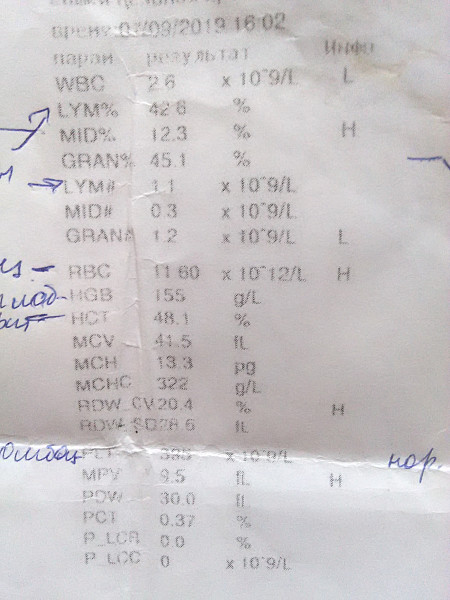 время 07/09/2019 16:02
парам результат Инфо
WBC 2.6 x 10^9/L L
LYM% 42.6 %
MID% 12.3 % H
GRAN% 45.1 %
LYM# 1.1 x 10^9/L
MID# 0.3 x 10^9/L
GRAN# 1.2 x 10^9/L L
RBC 11.60 x 10^12/L H
HGB 155 g/L
HCT 48.1 %
MCV 41.5 fL
MCH 13.3 pg
MCHC 322 g/L
RDW_CV 20.4 % H
RDW_SD 28.6 fL
PLT x 10^9/L нор.
MPV 9.5 fL H
PDW 30.0 fL
PCT 0.37 %
P_LCR 0.0 %
P_LCC 0 x 10^9/L